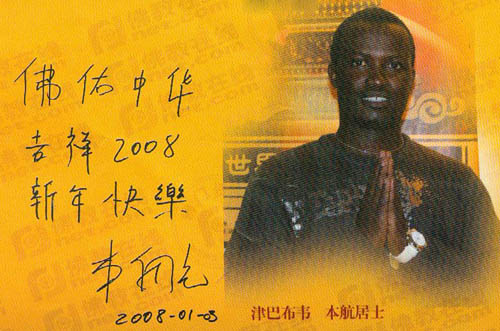 佛佑中华
吉祥2008
新年快樂
2008-01-03
世界
津巴布韦 本航居士